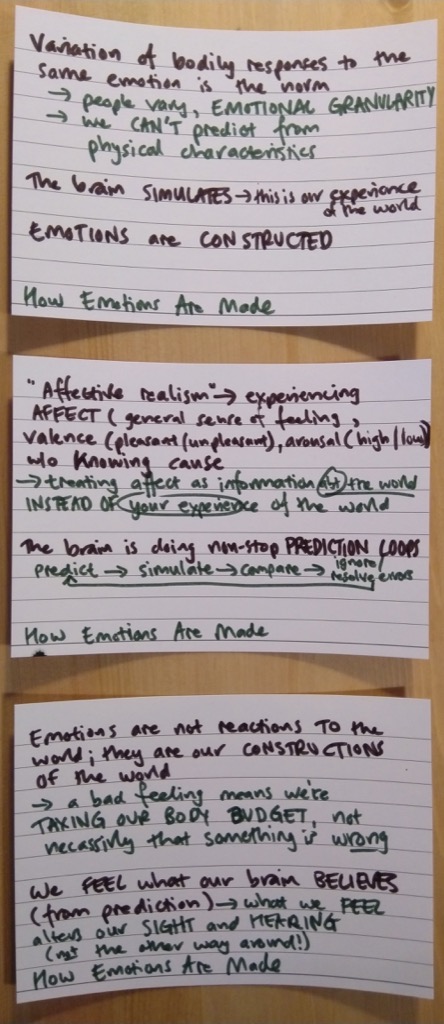 Variation of bodily responses to the
same emotion is the norm
→ people vary, EMOTIONAL GRANULARITY
→ we CAN'T predict from
physical characteristics
The brain SIMULATES → this is our experience
of the world
EMOTIONS are CONSTRUCTED
How Emotions Are Made
"Affective realism" → experiencing
AFFECT (general sense of feeling,
valence (pleasant/unpleasant), arousal (high/low))
w/o knowing cause
→ treating affect as information abt the world
INSTEAD OF your experience of the world
The brain is doing non-stop PREDICTION LOOPS
predict → simulate → compare → ignore/
resolve errors
How Emotions Are Made
Emotions are not reactions TO the
world; they are our CONSTRUCTIONS
OF the world
→ a bad feeling means we're
TAXING OUR BODY BUDGET, not
necassirly that something is wrong
We FEEL what our brain BELIEVES
(from prediction) → what we FEEL
alters our SIGHT and HEARING
(not the other way around!)
How Emotions Are Made